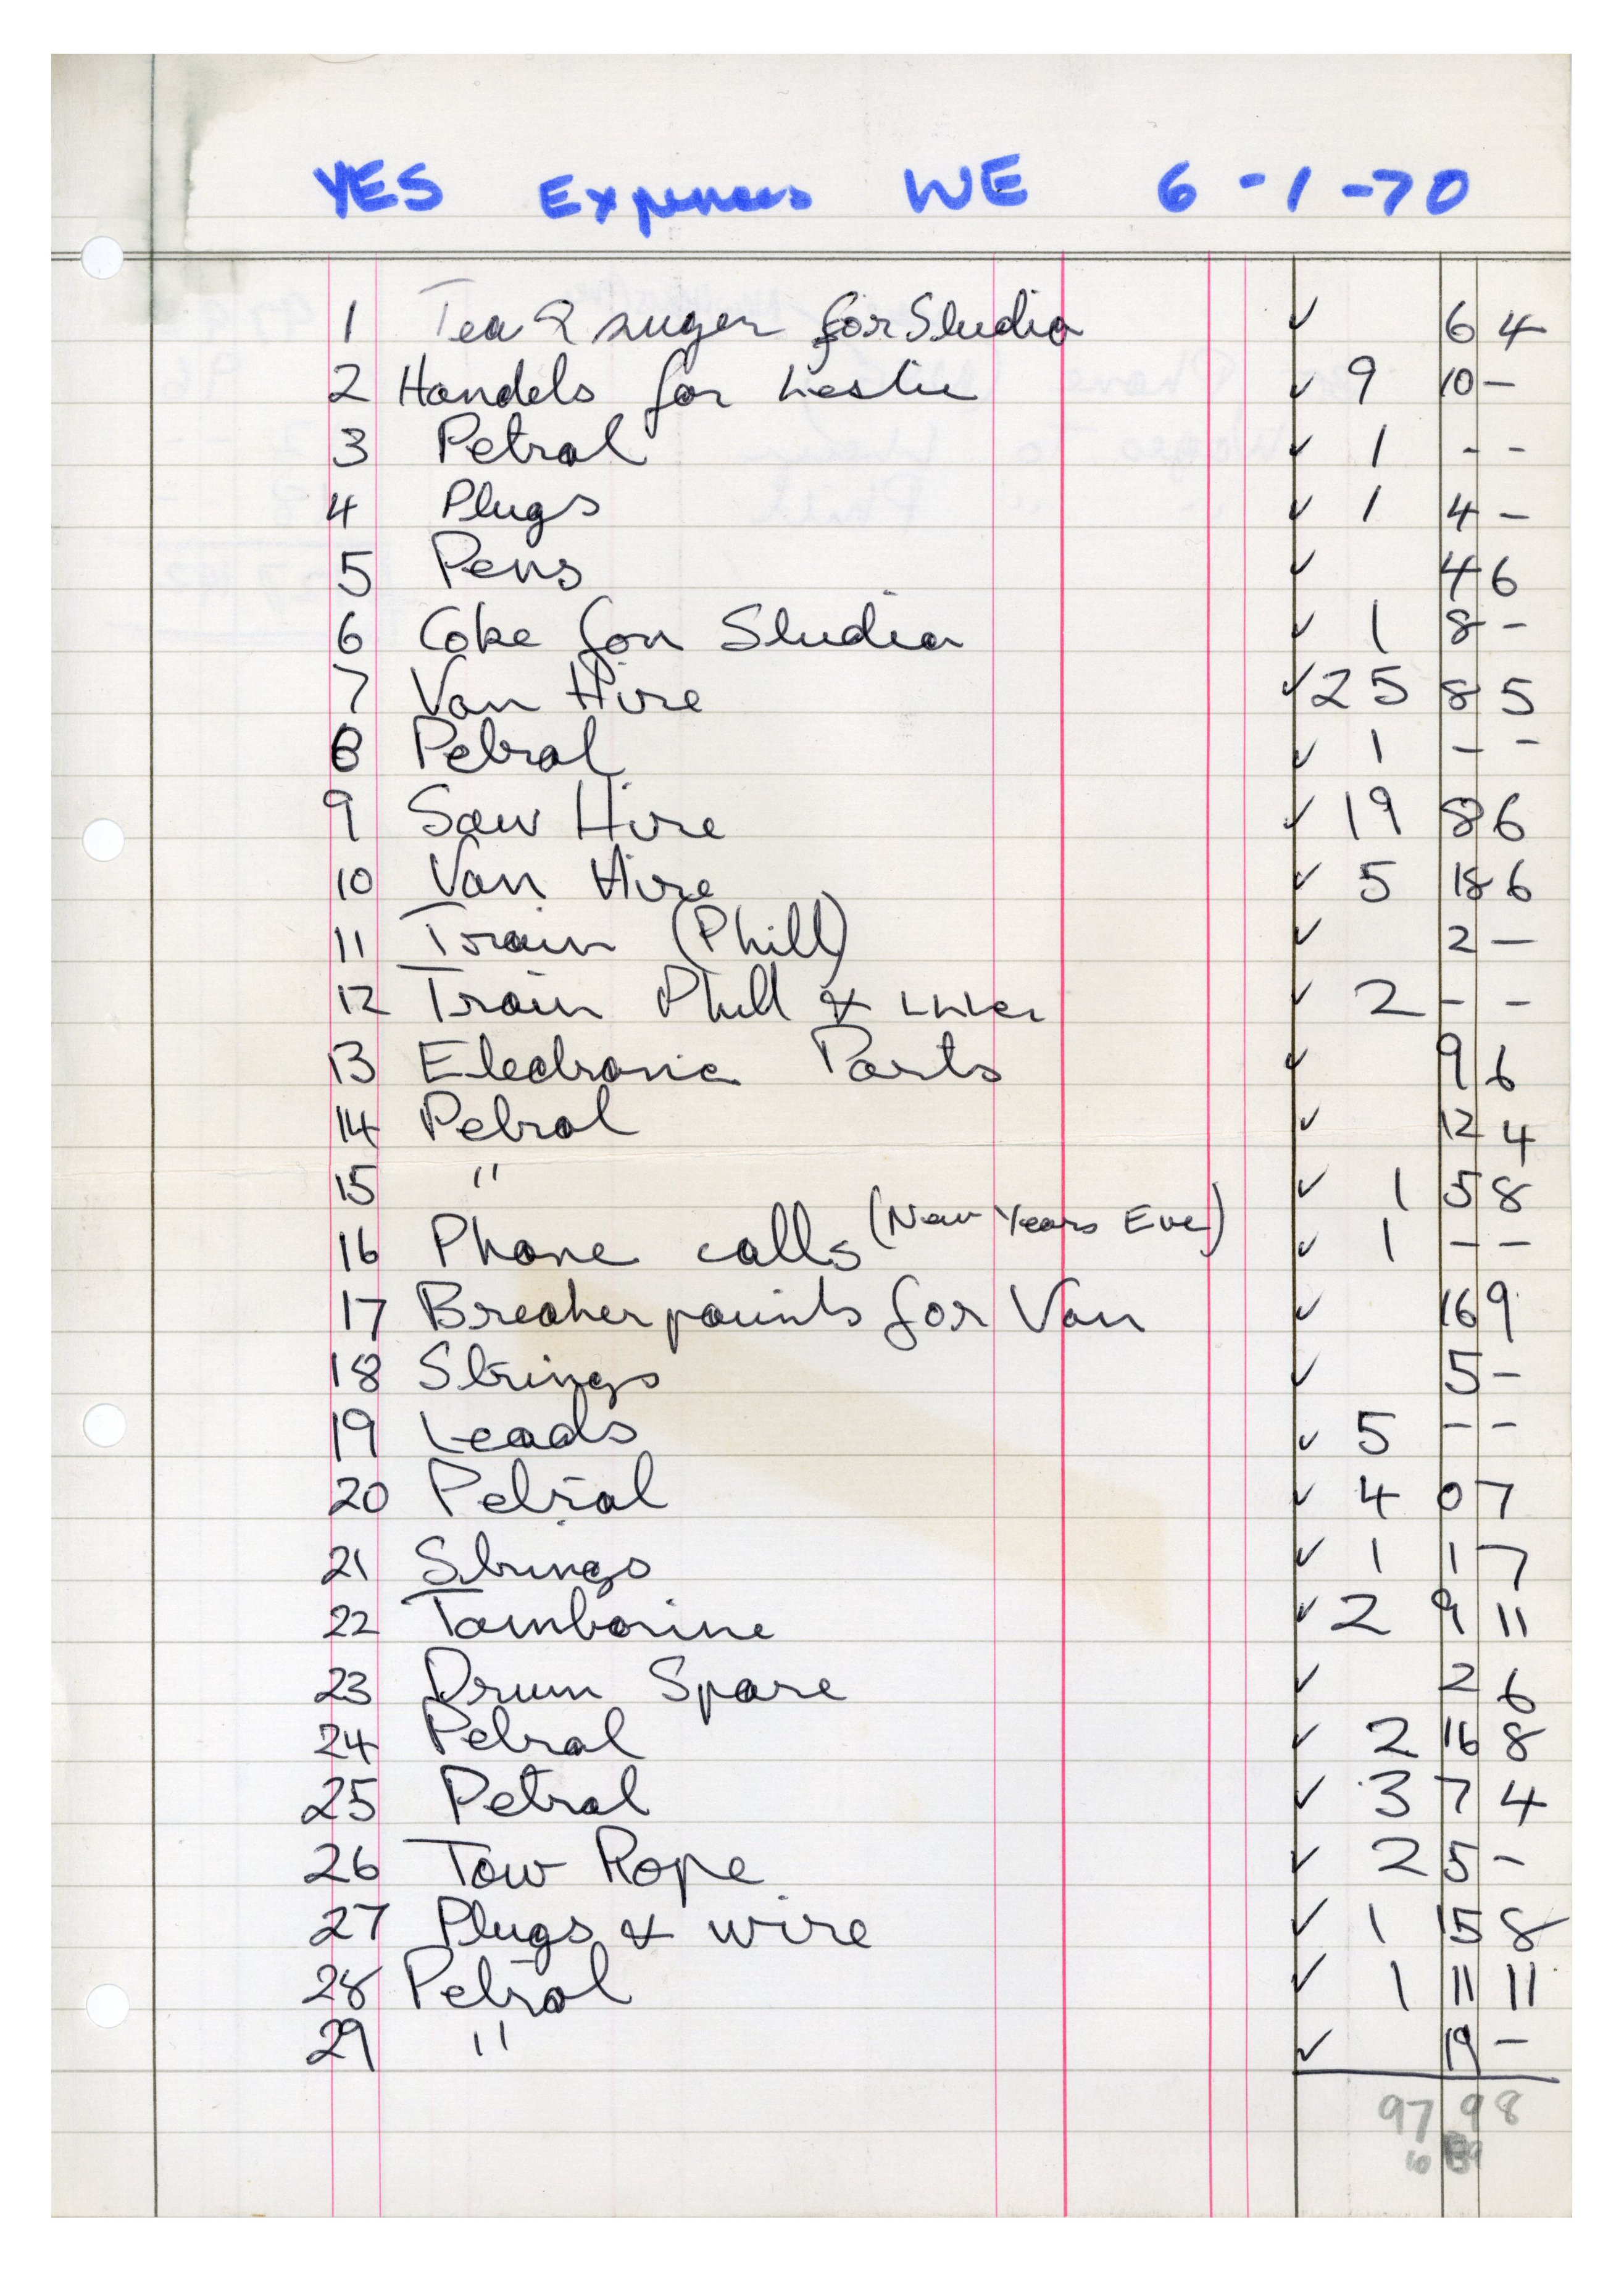 YES Expenses WE 6-1-70
1 Tea & suger for Studio ✓ 6 4
2 Handels for Leslie ✓ 9 10 -
3 Petrol ✓ 1 - -
4 Plugs ✓ 1 4 -
5 Pens ✓ 4 6
6 Coke for Studio ✓ 1 8 -
7 Van Hire ✓ 25 8 5
8 Petrol ✓ 1 - -
9 Saw Hire ✓ 19 8 6
10 Van Hire ✓ 5 18 6
11 Train (Phill) ✓ 2 -
12 Train Phill & ✓ 2 - -
13 Electronic Parts ✓ 9 6
14 Petrol ✓ 12 4
15 " ✓ 1 5 8
16 Phone calls (New Years Eve) ✓ 1 - -
17 Breaker points for Van ✓ 16 9
18 Strings ✓ 5 -
19 Leads ✓ 5 - -
20 Petrol ✓ 4 0 7
21 Strings ✓ 1 1 7
22 Tamborine ✓ 2 9 11
23 Drum Spare ✓ 2 6
24 Petrol ✓ 2 16 8
25 Petrol ✓ 3 7 4
26 Tow Rope ✓ 2 5 -
27 Plugs & wire ✓ 1 15 8
28 Petrol ✓ 1 11 11
29 " ✓ 19 -
97 9 8